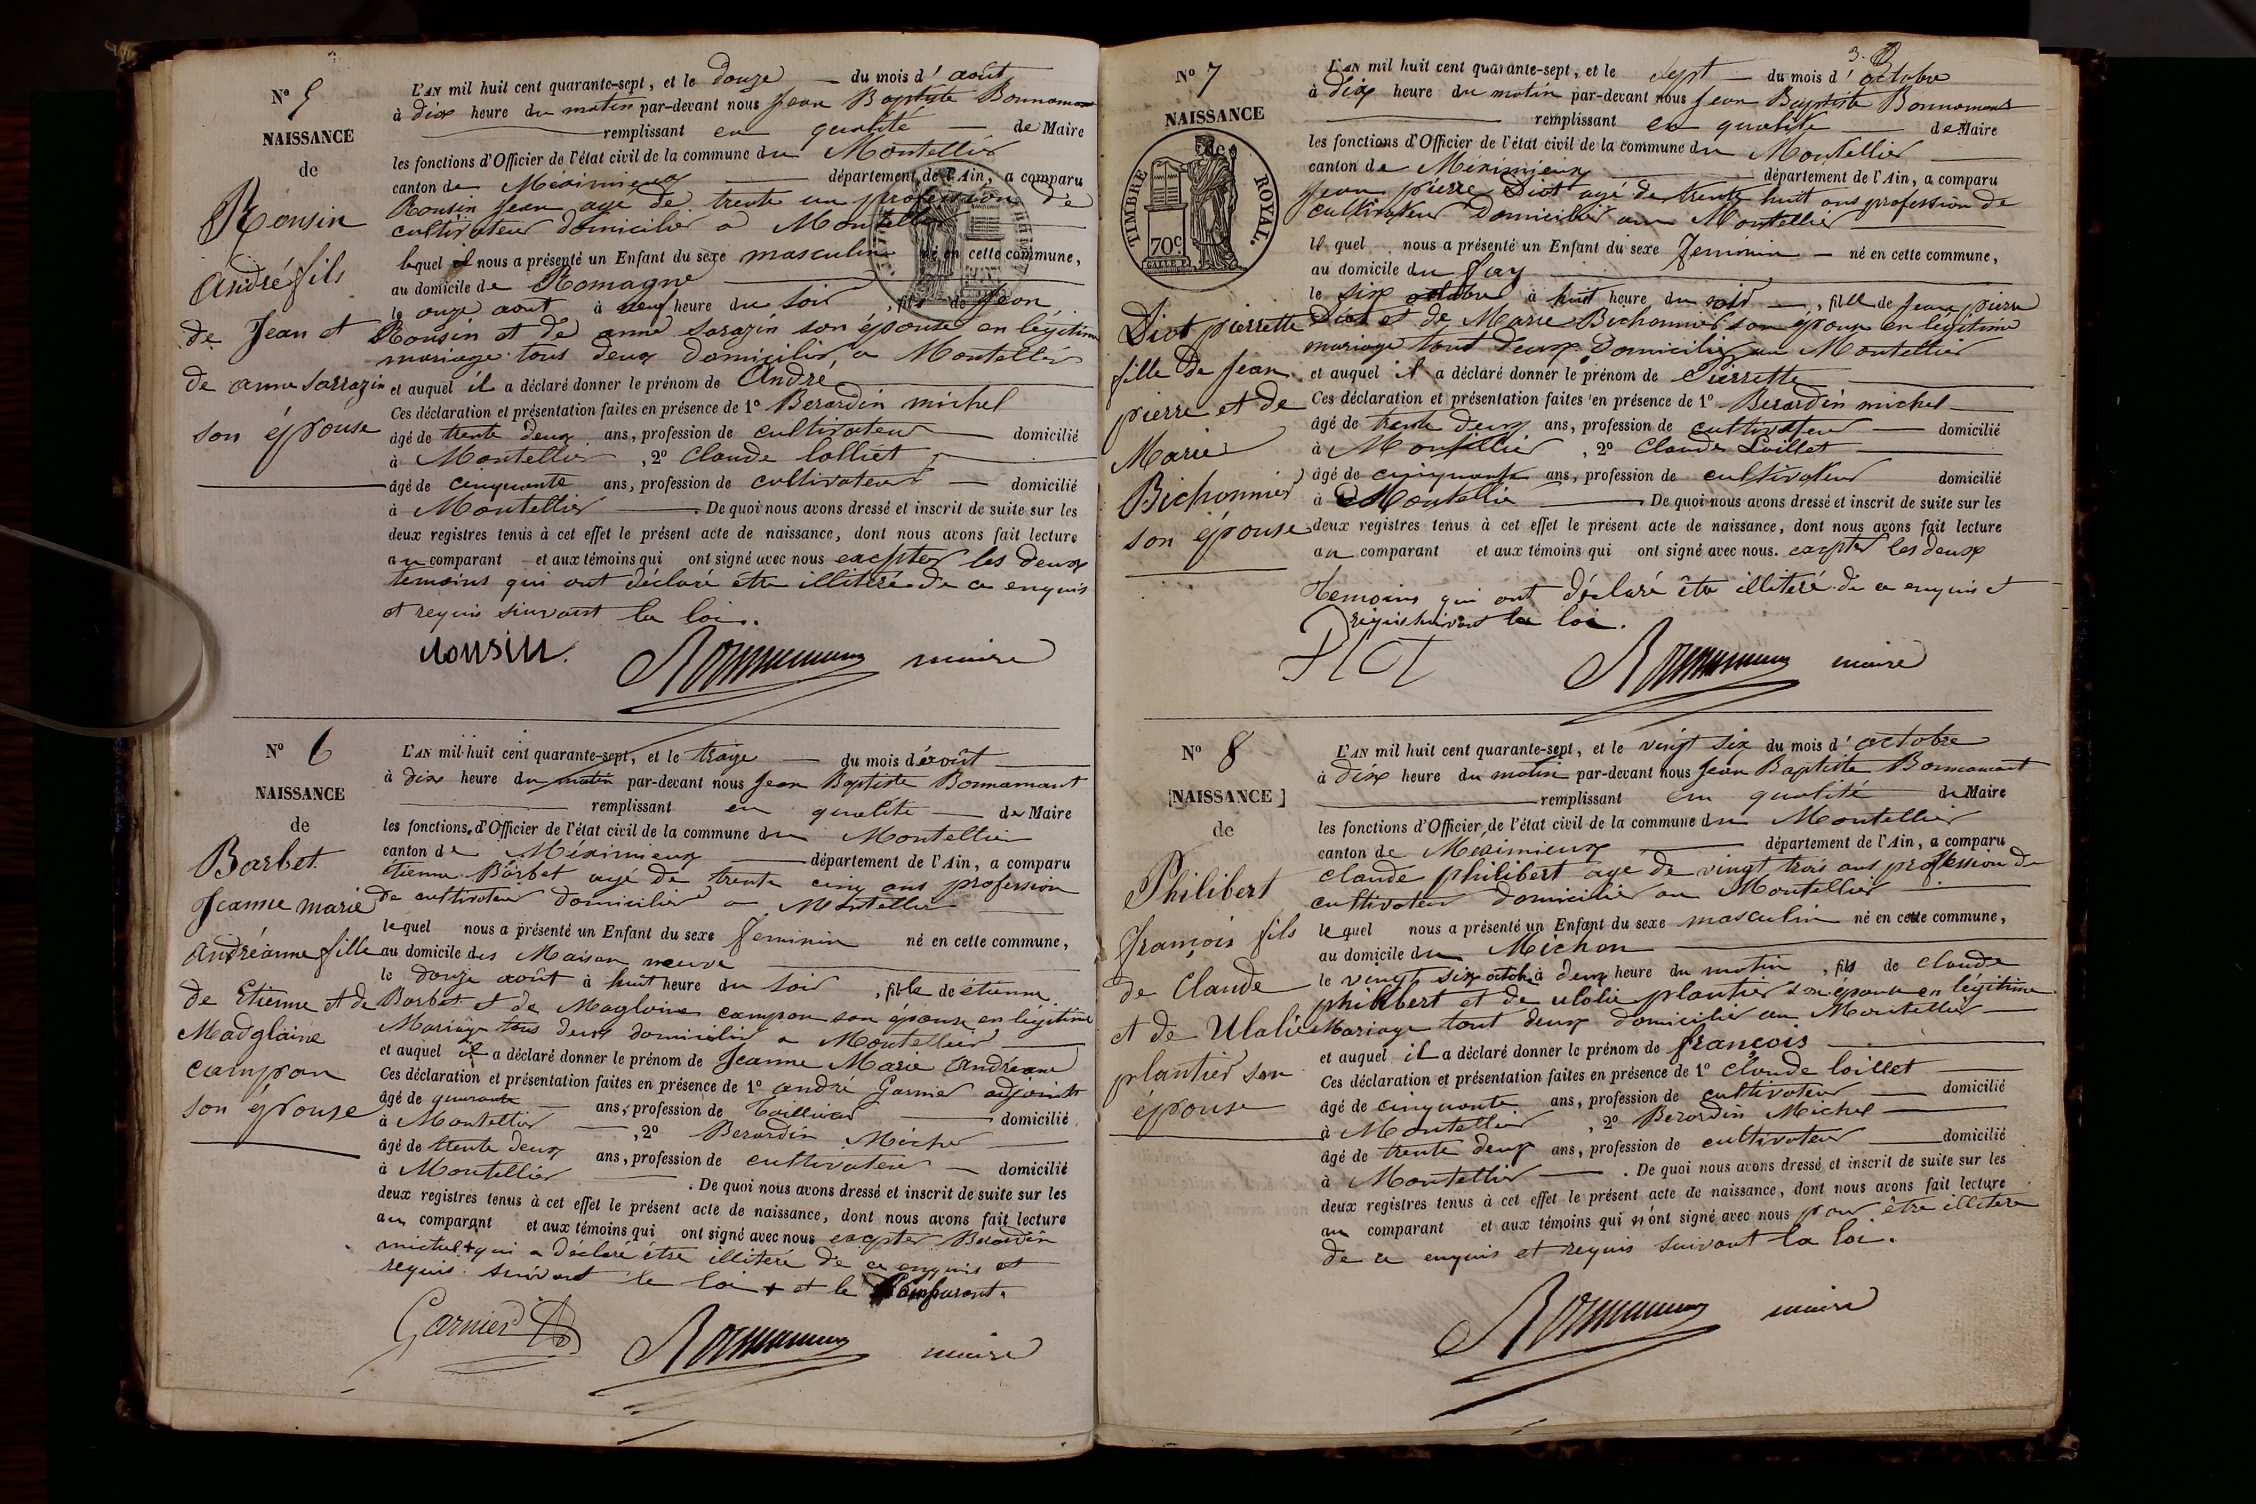 N° 5
NAISSANCE
de
Rousin
André fils
de Jean et
de anne sarrazin
son épouse
L'AN mil huit cent quarante-sept, et le douze du mois d' août
à dix heure du matin par-devant nous Jean Baptiste Bonnamant
remplissant en qualité de Maire
les fonctions d'Officier de l'état civil de la commune du Montellier
canton de Méximieux département de l'Ain, a comparu
Rousin Jean agé de trente un profession de
cultivateur domicilié a Montellier
lequel il nous a présenté un Enfant du sexe masculin né en cette commune,
au domicile de Romagne
le onze aout à neuf heure du soir, fils de Jean
Rousin et de anne sarazin son épouse en légitime
mariage tous deux domicilié a Montellier
et auquel il a déclaré donner le prénom de André
Ces déclaration et présentation faites en présence de 1° Berardin michel
âgé de trente deux ans, profession de cultivateur domicilié
à Montellier, 2° Claude lolliet
âgé de cinquante ans, profession de cultivateur domicilié
à Montellier. De quoi nous avons dressé et inscrit de suite sur les
deux registres tenus à cet effet le présent acte de naissance, dont nous avons fait lecture
au comparant et aux témoins qui ont signé avec nous excepter les deux
témoins qui ont déclaré être illiteré de ce enquis
et requis suivant la loi.
rousin. Bonnamant maire
N° 6
NAISSANCE
de
Barbet
Jeanne marie
Andréanne fille
de Etienne et de
Madglaine
campan
son épouse
L'AN mil huit cent quarante-sept, et le traize du mois d'août
à dix heure du matin par-devant nous Jean Baptiste Bonnamant
remplissant en qualité de Maire
les fonctions d'Officier de l'état civil de la commune du Montellier
canton de Méximieux département de l'Ain, a comparu
étienne Barbet agé de trente cinq ans profession
de cultivateur domicilié a Montellier
lequel nous a présenté un Enfant du sexe feminin né en cette commune,
au domicile des Maison neuve
le douze août à huit heure du soir, fille de étienne
Barbet et de Magloine campan son épouse en légitime
Mariage tous deux domicilié a Montellier
et auquel il a déclaré donner le prénom de Jeanne Marie Andréane
Ces déclaration et présentation faites en présence de 1° andré Garnier adjoint
âgé de quarante ans, profession de domicilié
à Montellier, 2° Berardin Michel
âgé de trente deux ans, profession de cultivateur domicilié
à Montellier. De quoi nous avons dressé et inscrit de suite sur les
deux registres tenus à cet effet le présent acte de naissance, dont nous avons fait lecture
au comparant et aux témoins qui ont signé avec nous excepter Berardin
michel + qui a déclaré être illiteré de ce enquis et
requis suivant la loi + et le Comparant.
Garnier Bonnamant maire
3.
N° 7
NAISSANCE
de
TIMBRE ROYAL.
70c
Diot pierrette
fille de Jean
pierre et de
Marie
Bichonnier
son épouse
L'AN mil huit cent quarante-sept, et le sept du mois d' octobre
à dix heure du matin par-devant nous Jean Baptiste Bonnamant
remplissant en qualité de Maire
les fonctions d'Officier de l'état civil de la commune du Montellier
canton de Méximieux département de l'Ain, a comparu
Jean pierre Diot agé de trente huit ans profession de
cultivateur Domicilié au Montellier
lequel nous a présenté un Enfant du sexe feminin né en cette commune,
au domicile du fay
le six octobre à huit heure du soir, fille de Jean pierre
Diot et de Marie Bichonnier son épouse en légitime
mariage tout deux Domicilié au Montellier
et auquel il a déclaré donner le prénom de Pierrette
Ces déclaration et présentation faites en présence de 1° Berardin michel
âgé de trente deux ans, profession de cultivateur domicilié
à Montellier, 2° Claude Loillet
âgé de cinquante ans, profession de cultivateur domicilié
à Montellier. De quoi nous avons dressé et inscrit de suite sur les
deux registres tenus à cet effet le présent acte de naissance, dont nous avons fait lecture
au comparant et aux témoins qui ont signé avec nous. excepter les deux
temoins qui ont déclaré être illiteré de ce enquis et
requis suivant la loi.
Diot Bonnamant maire
N° 8
[NAISSANCE]
de
Philibert
françois fils
de Claude
et de Ulalie
plantier son
épouse
L'AN mil huit cent quarante-sept, et le vingt six du mois d' octobre
à dix heure du matin par-devant nous Jean Baptiste Bonnamant
remplissant en qualité de Maire
les fonctions d'Officier de l'état civil de la commune du Montellier
canton de Méximieux département de l'Ain, a comparu
claude philibert agé de vingt trois ans profession de
cultivateur domicilié au Montellier
lequel nous a présenté un Enfant du sexe masculin né en cette commune,
au domicile du Michon
le vingt six octob à deux heure du matin, fils de claude
philibert et de ulalie plantier son épouse en légitime
Mariage tout deux domicilié au Montellier
et auquel il a déclaré donner le prénom de françois
Ces déclaration et présentation faites en présence de 1° claude loillet
âgé de cinquante ans, profession de cultivateur domicilié
à Montellier, 2° Berardin Michel
âgé de trente deux ans, profession de cultivateur domicilié
à Montellier. De quoi nous avons dressé et inscrit de suite sur les
deux registres tenus à cet effet le présent acte de naissance, dont nous avons fait lecture
au comparant et aux témoins qui n'ont signé avec nous pour être illitere
de ce enquis et requis suivant la loi.
Bonnamant maire